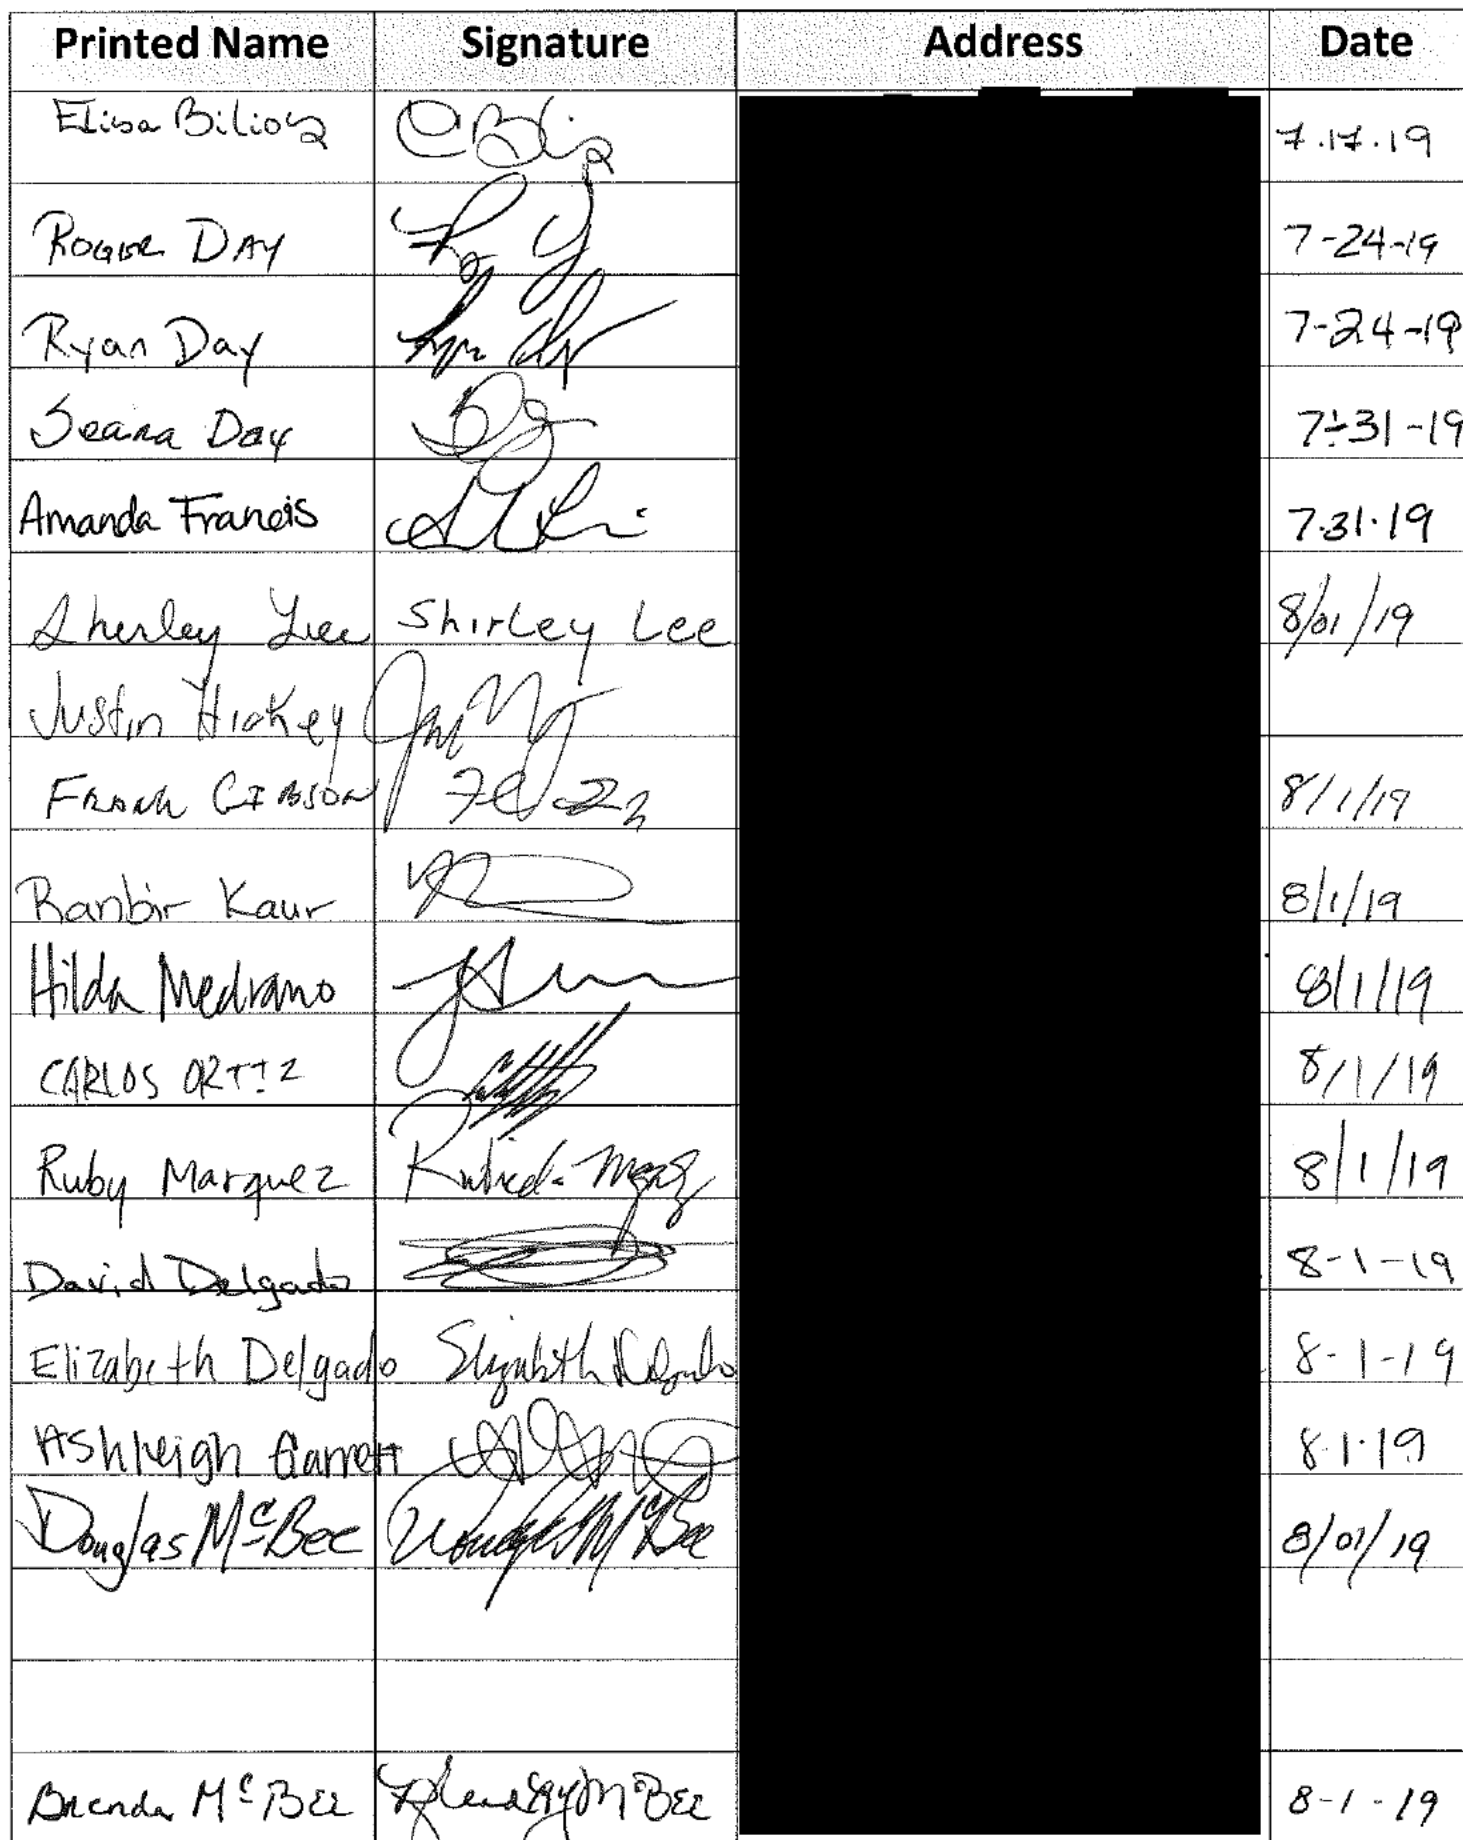 Printed Name Signature Address Date
Elisa 7.17.19
Roger Day 7-24-19
Ryan Day 7-24-19
Seana Day 7-31-19
Amanda Francis 7.31.19
Sherley Lee Shirley Lee 8/01/19
Justin Hickey
Frank Gibson 8/1/19
Ranbir Kaur 8/1/19
Hilda Medrano 8/1/19
CARLOS ORTIZ 8/1/19
Ruby Marquez 8/1/19
David Delgado 8-1-19
Elizabeth Delgado Elizabeth Delgado 8-1-19
Ashleigh Garrett 8.1.19
Douglas McBee Douglas McBee 8/01/19
Brenda McBee McBee 8-1-19